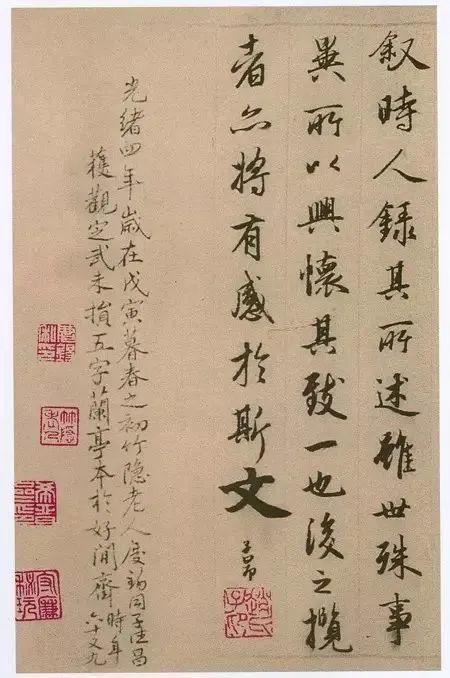 叙時人錄其所述雖世殊事
異所以興懷其致一也後之攬
者亦將有感於斯文
子昂
趙氏子昂
光緒四年歲在戊寅暮春之初竹隱老人同子昌
獲觀定武未損五字蘭亭本於好閒齋時年
六十又九